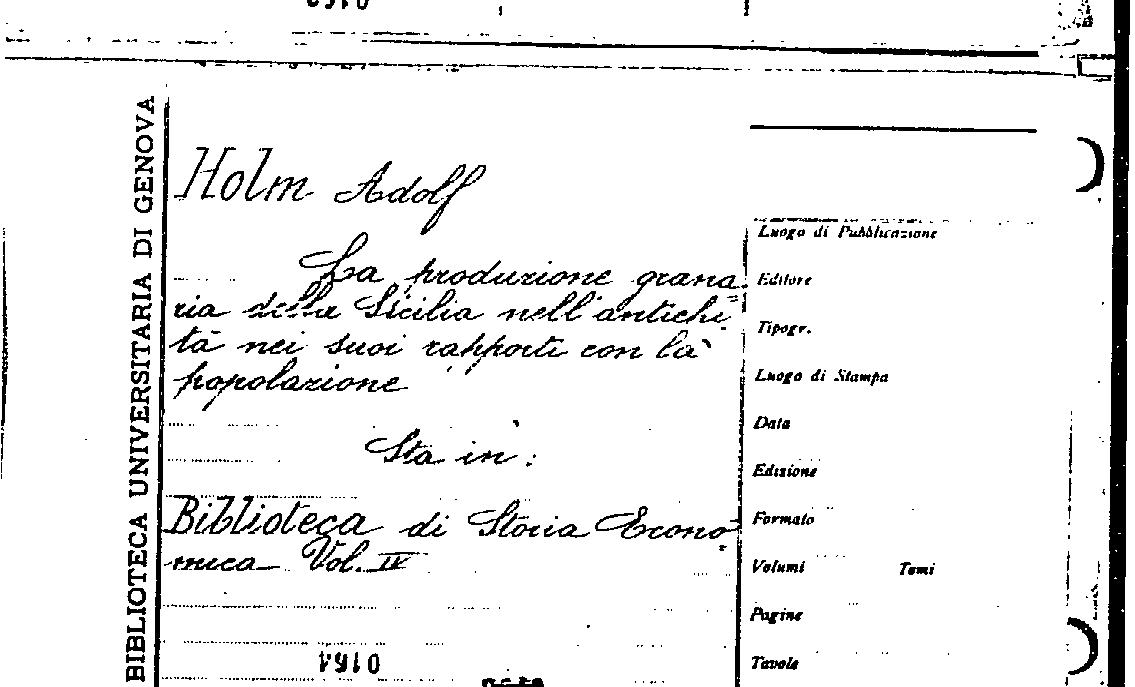 BIBLIOTECA UNIVERSITARIA DI GENOVA
Holm Adolf
La produzione grana
ria della Sicilia nell'antichi
tà nei suoi rapporti con la
popolazione
Sta in:
Biblioteca di Storia Econo
mica Vol. IV
Luogo di Pubblicazione
Editore
Tipogr.
Luogo di Stampa
Data
Edizione
Formato
Volumi Tomi
Pagine
Tavole